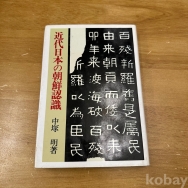 百殘新羅舊是屬民
由來朝貢而倭以辛
卯年來渡海破百殘
羅以為臣民
近代日本の朝鮮認識
中塚 明著
kobay